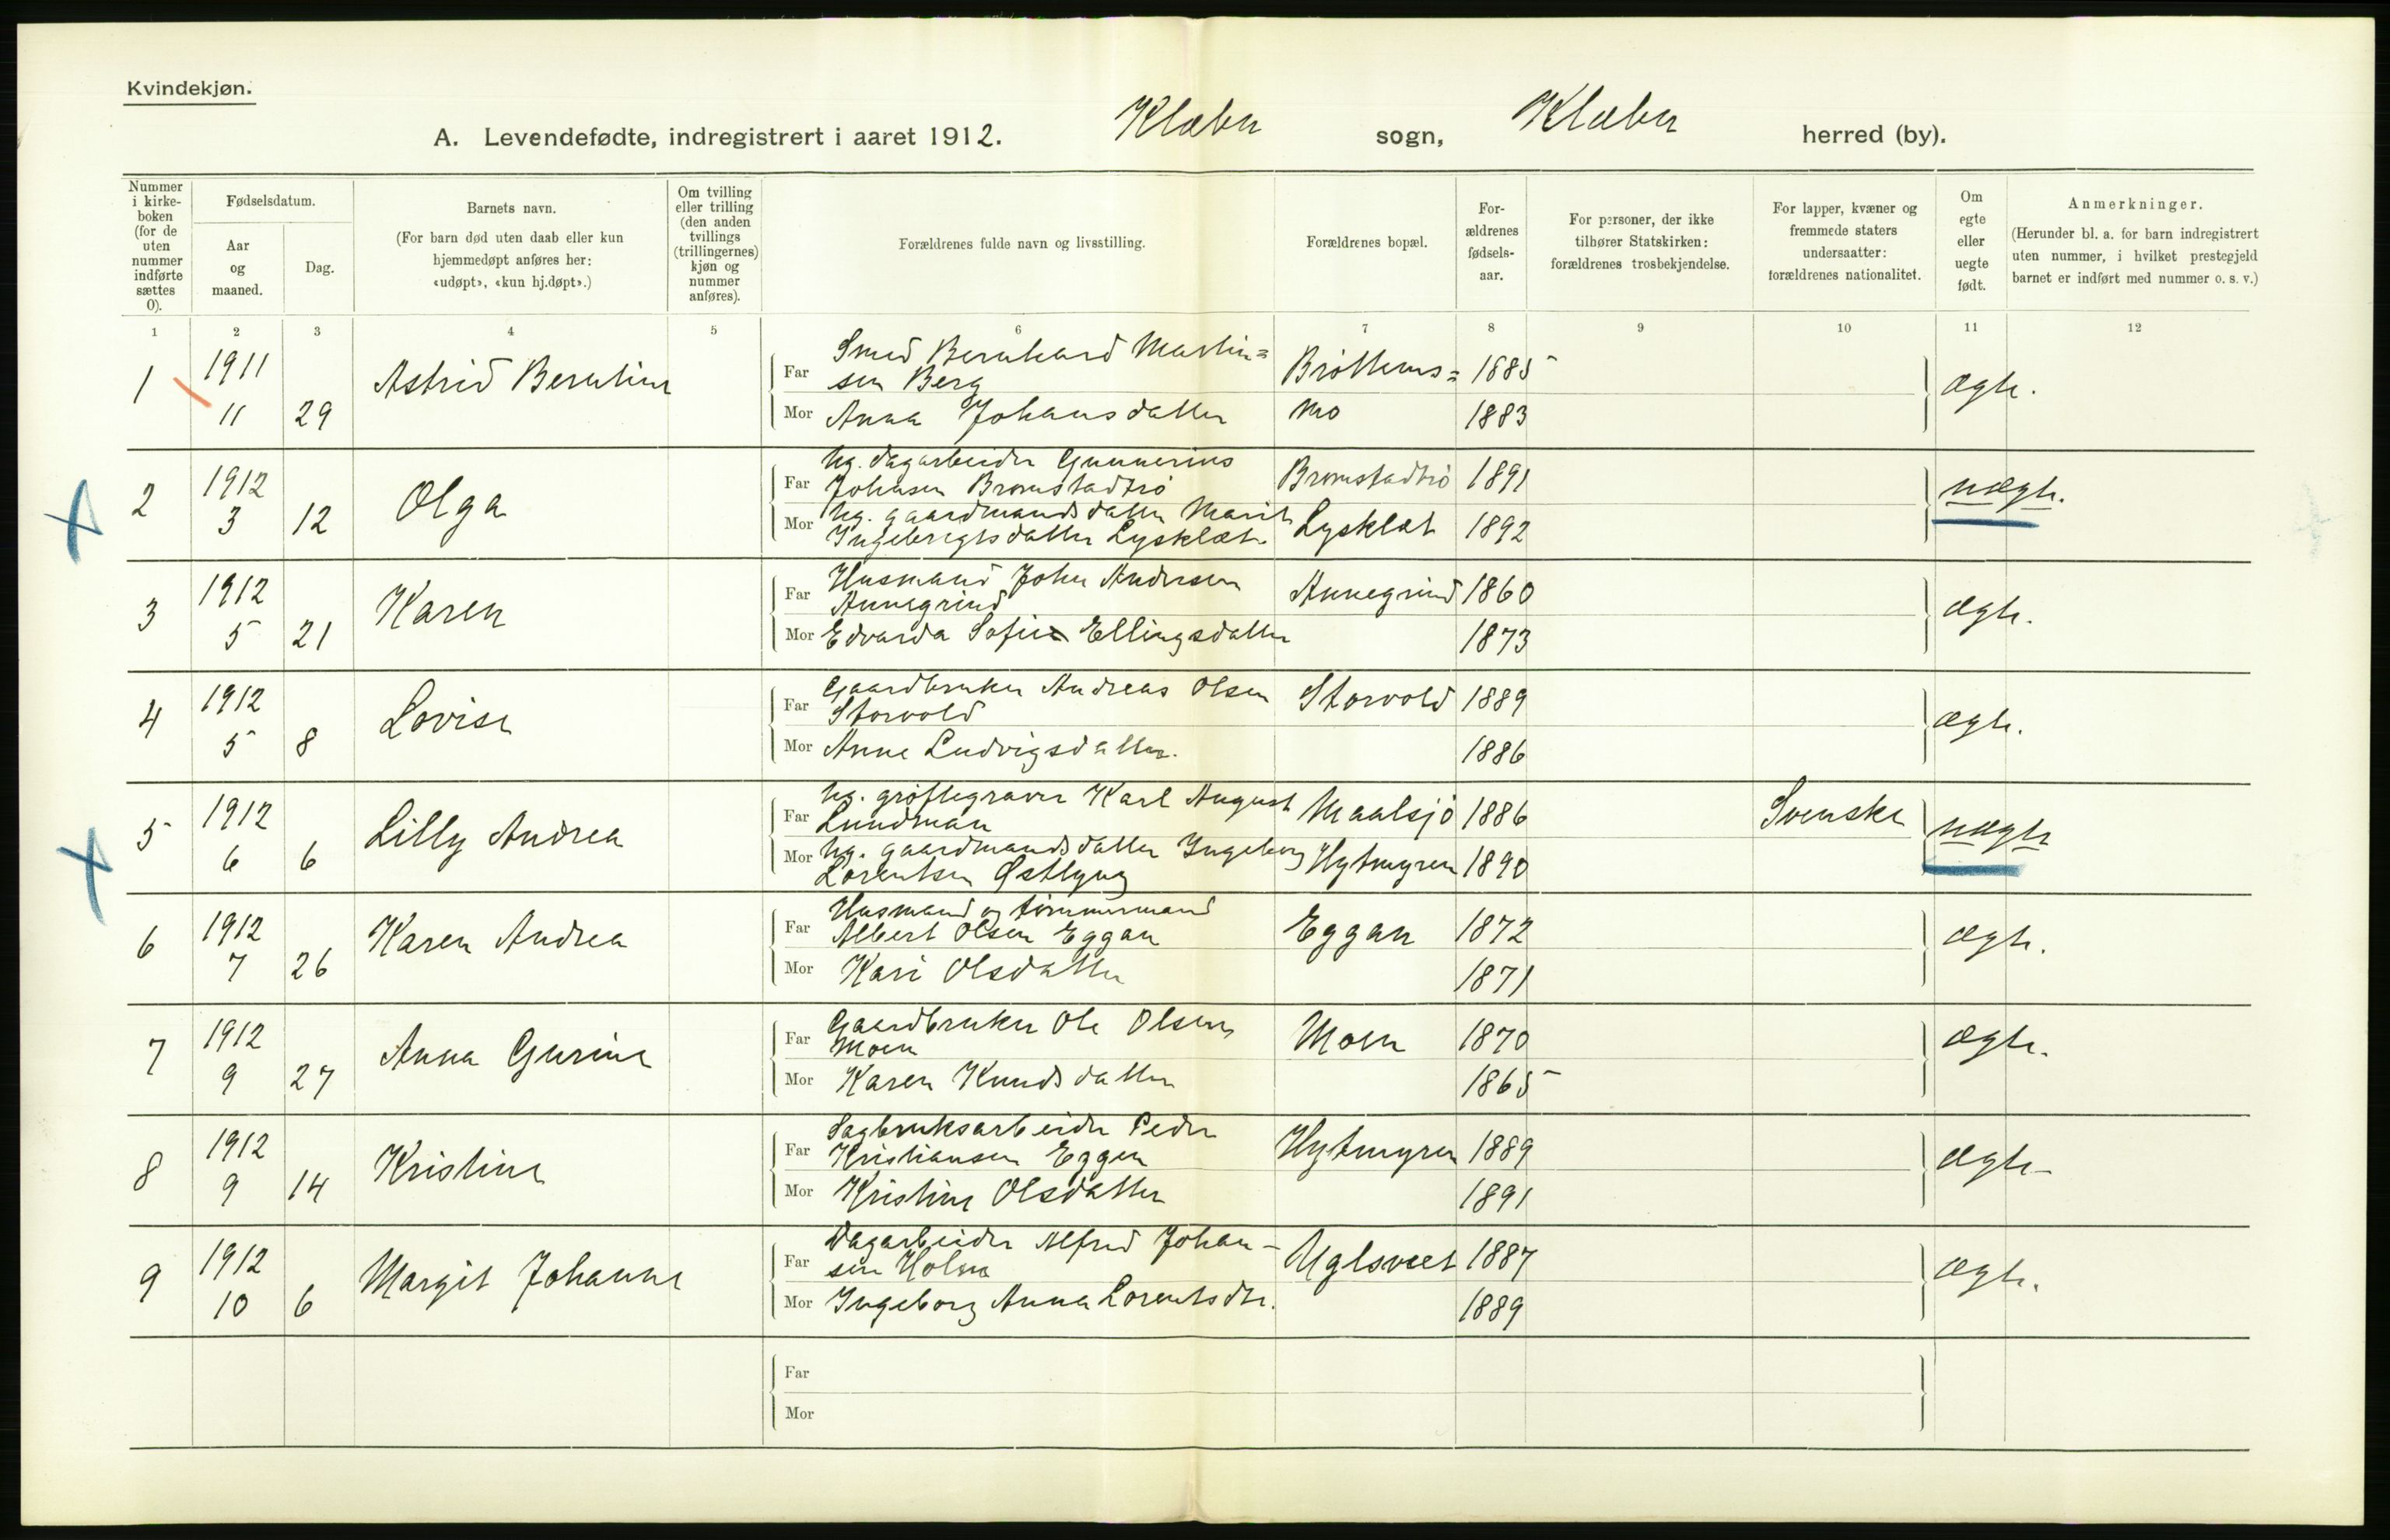 Kvindekjøn.
A. Levendefødte, indregistrert i aaret 1912. Klæbu sogn, Klæbu herred (by).
Nummer i kirke-boken (for de uten nummer indførte sættes 0).
Fødselsdatum.
Aar og maaned.
Dag.
Barnets navn.
(For barn død uten daab eller kun hjemmedøpt anføres her: «udøpt», «kun hj.døpt».)
Om tvilling eller trilling (den anden tvillings (trillingernes) kjøn og nummer anføres).
Forældrenes fulde navn og livsstilling.
Forældrenes bopæl.
For-ældrenes fødsels-aar.
For personer, der ikke tilhører Statskirken: forældrenes trosbekjendelse.
For lapper, kvæner og fremmede staters undersaatter: forældrenes nationalitet.
Om egte eller uegte født.
Anmerkninger.
(Herunder bl. a. for barn indregistrert uten nummer, i hvilket prestegjeld barnet er indført med nummer o. s. v.)
1 2 3 4 5 6 7 8 9 10 11 12
1 1911 11 29 Astrid Berntine
Far Smed Bernhard Martin=
sen Berg Brøttems= 1885 ægte.
Mor Anna Johansdatter mo 1883
2 1912 3 12 Olga
Far Ug. dagarbeider Gunnerius
Johnsen Bromstadtrø Bromstadtrø 1891 uægte.
Mor Ug. gaardmandsdatter Marit
Ingebrigtsdatter Lysklæt Lysklæt 1892
3 1912 5 21 Karen
Far Husmand John Andersen
Annegrind Annegrind 1860 ægte.
Mor Edvarda Sofie Ellingsdatter 1873
4 1912 5 8 Lovise
Far Gaardbruker Andreas Olsen
Storvold Storvold 1889 ægte.
Mor Anne Ludvigsdatter. 1886
5 1912 6 6 Lilly Andrea
Far Ug. grøftegraver Karl August
Lundman Maalsjø 1886 Svenske uægte
Mor Ug. gaardmandsdatter Ingeborg
Lorentsen Østlyng Hytmyren 1890
6 1912 7 26 Karen Andrea
Far Husmand og tømmermand
Albert Olsen Eggan Eggan 1872 ægte.
Mor Kari Olsdatter 1871
7 1912 9 27 Anna Gurine
Far Gaardbruker Ole Olsen
Moen Moen 1870 ægte.
Mor Karen Knudsdatter 1865
8 1912 9 14 Kristine
Far Sagbruksarbeider Peder
Kristiansen Eggen Hytmyren 1889 ægte
Mor Kristine Olsdatter 1891
9 1912 10 6 Margit Johanne
Far Dagarbeider Alfred Johan-
sen Holm Uglsveet 1887 ægte.
Mor Ingeborg Anna Lorentsdtr. 1889
Far
Mor